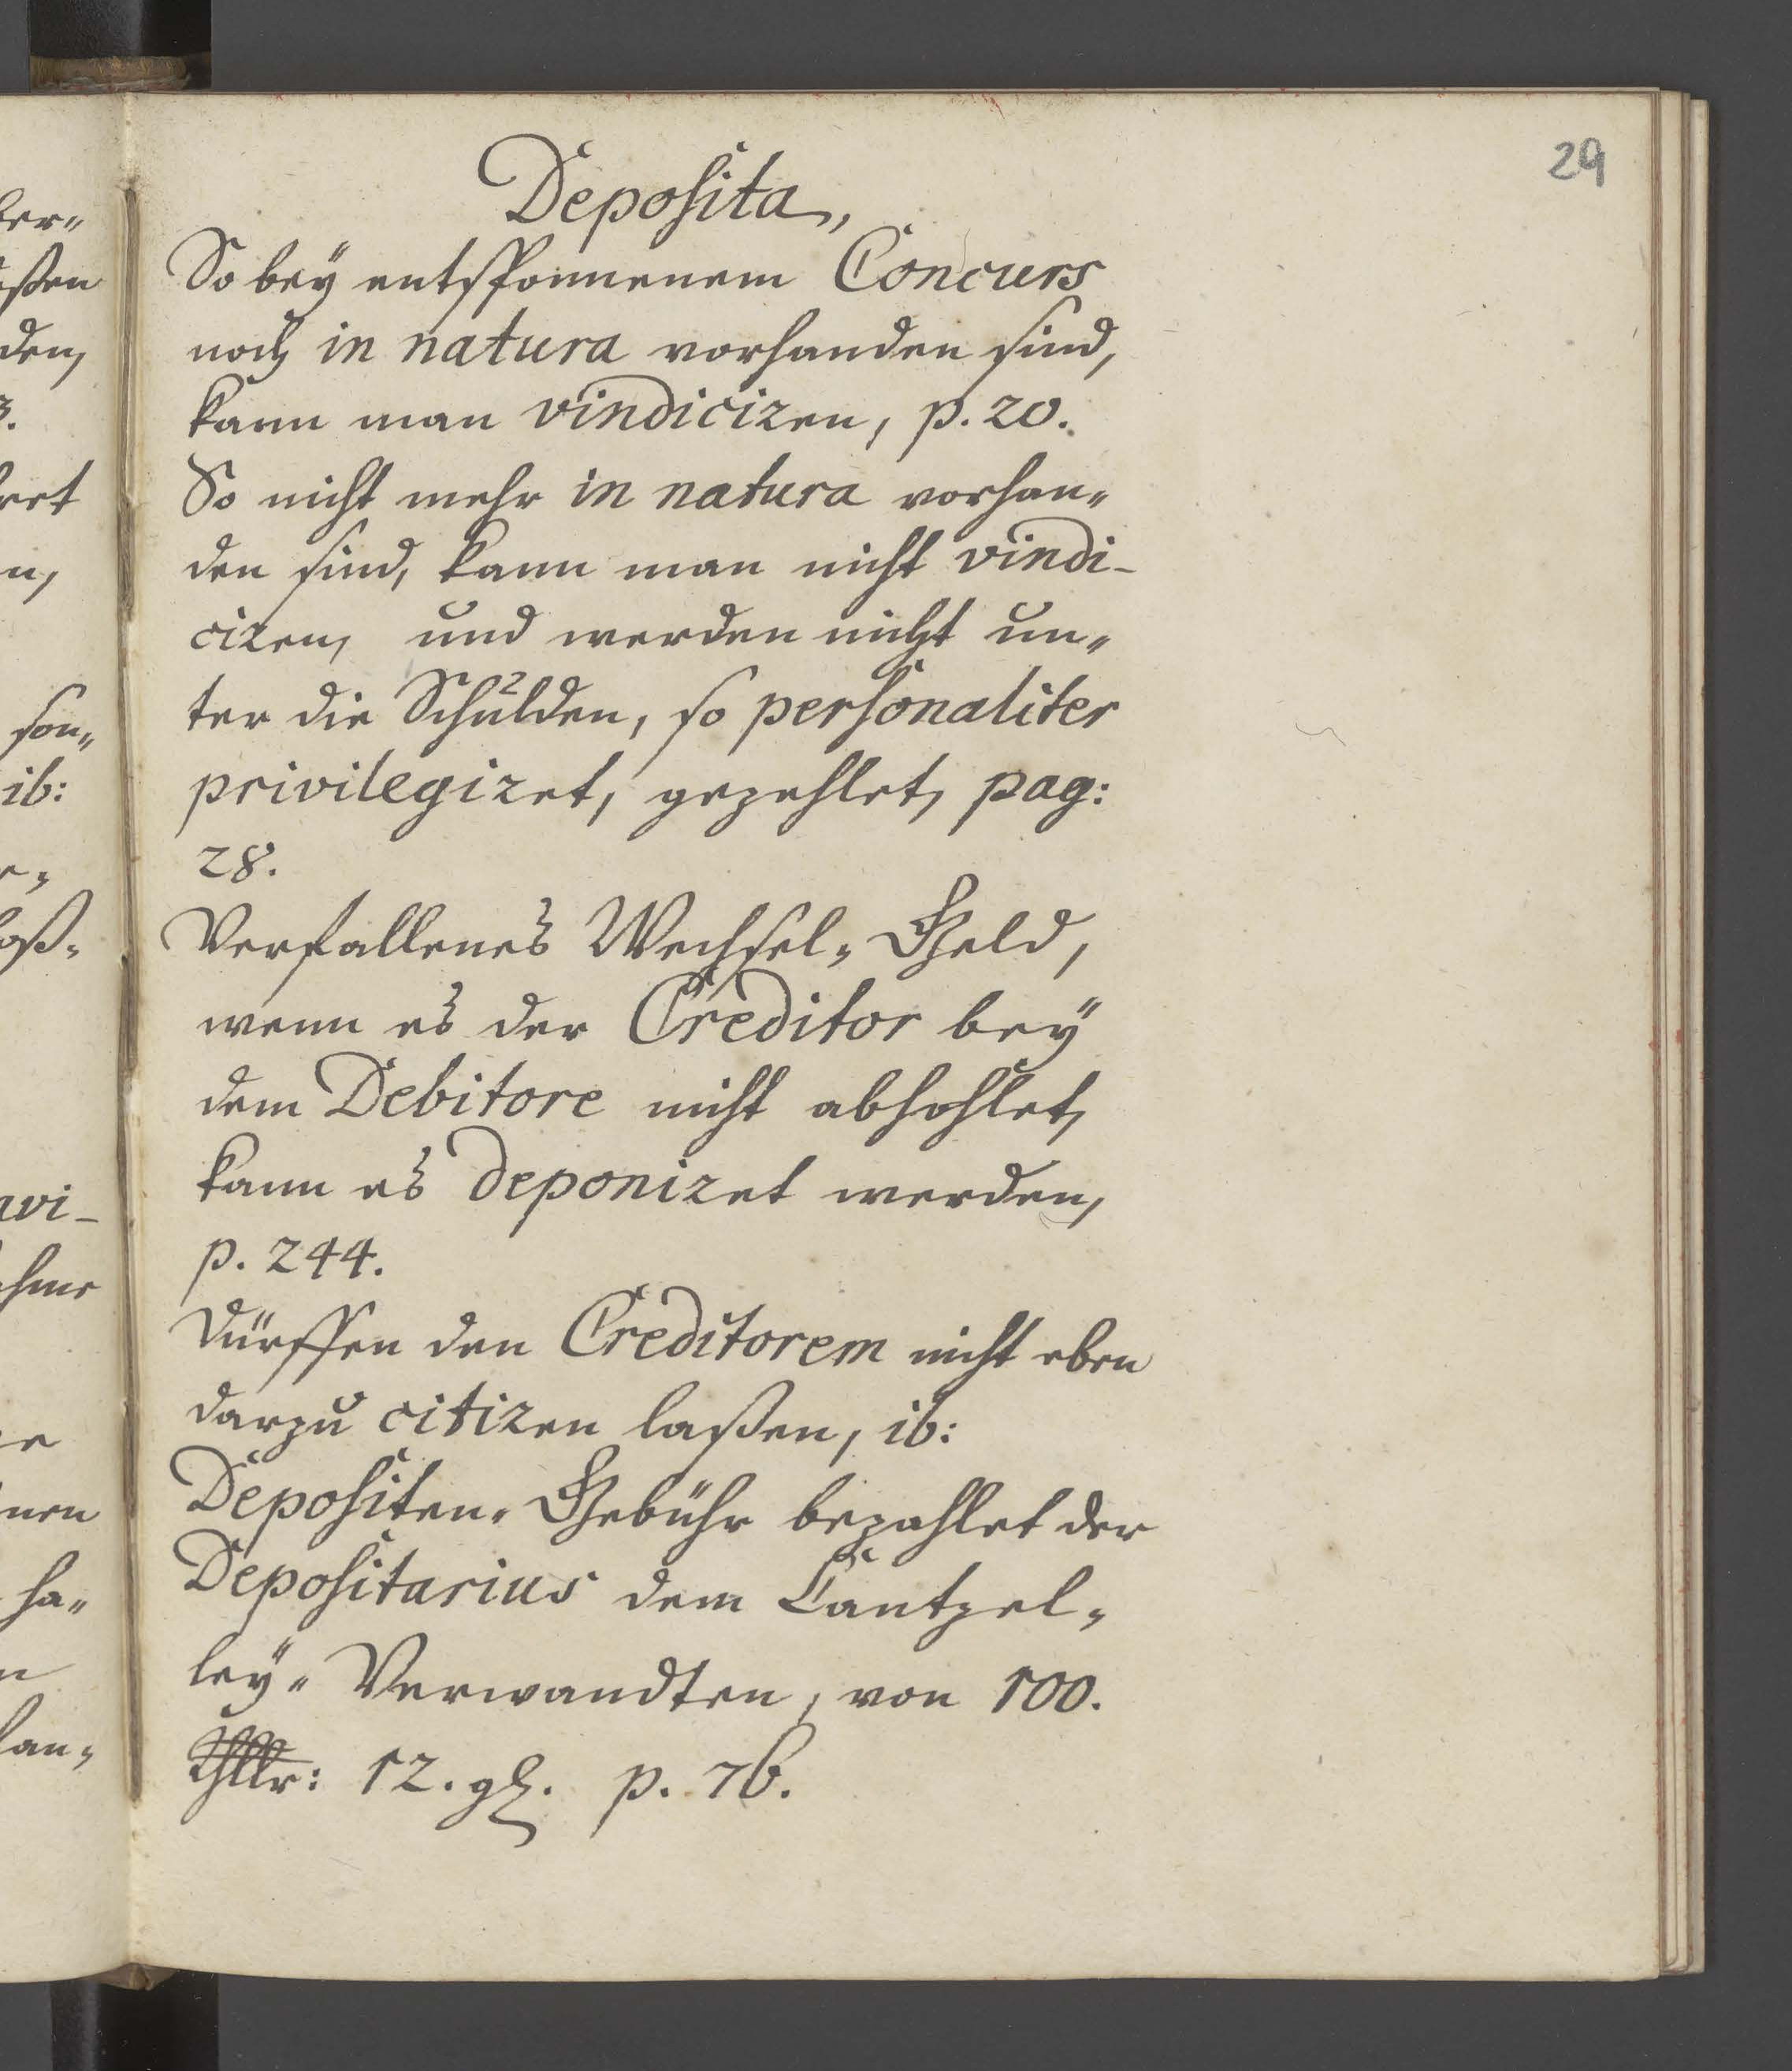 29
Deposita,
So bey entsponnenem Concurs
noch in natura vorhanden sind,
kann man vindiciren, p. 20.
So nicht mehr in natura vorhan„
den sind, kann man nicht vindi-
ciren, und werden nicht un„
ter die Schulden, so personaliter
privilegiret, gezehlet, pag:
28.
Verfallenes Wechsel„Geld,
wenn es der Creditor bey
dem Debitore nicht abhohlet,
kann es deponiret werden,
p. 244.
Dürffen den Creditorem nicht eben
darzu citiren laßen, ib:
Depositen„Gebühr bezahlet der
Depositarius dem Cantzel„
ley„Verwandten, von 100.
Thlr: 12. gl. p. 76.
ßen
den,
3.
n,
son„
ib:
vi-
ha„